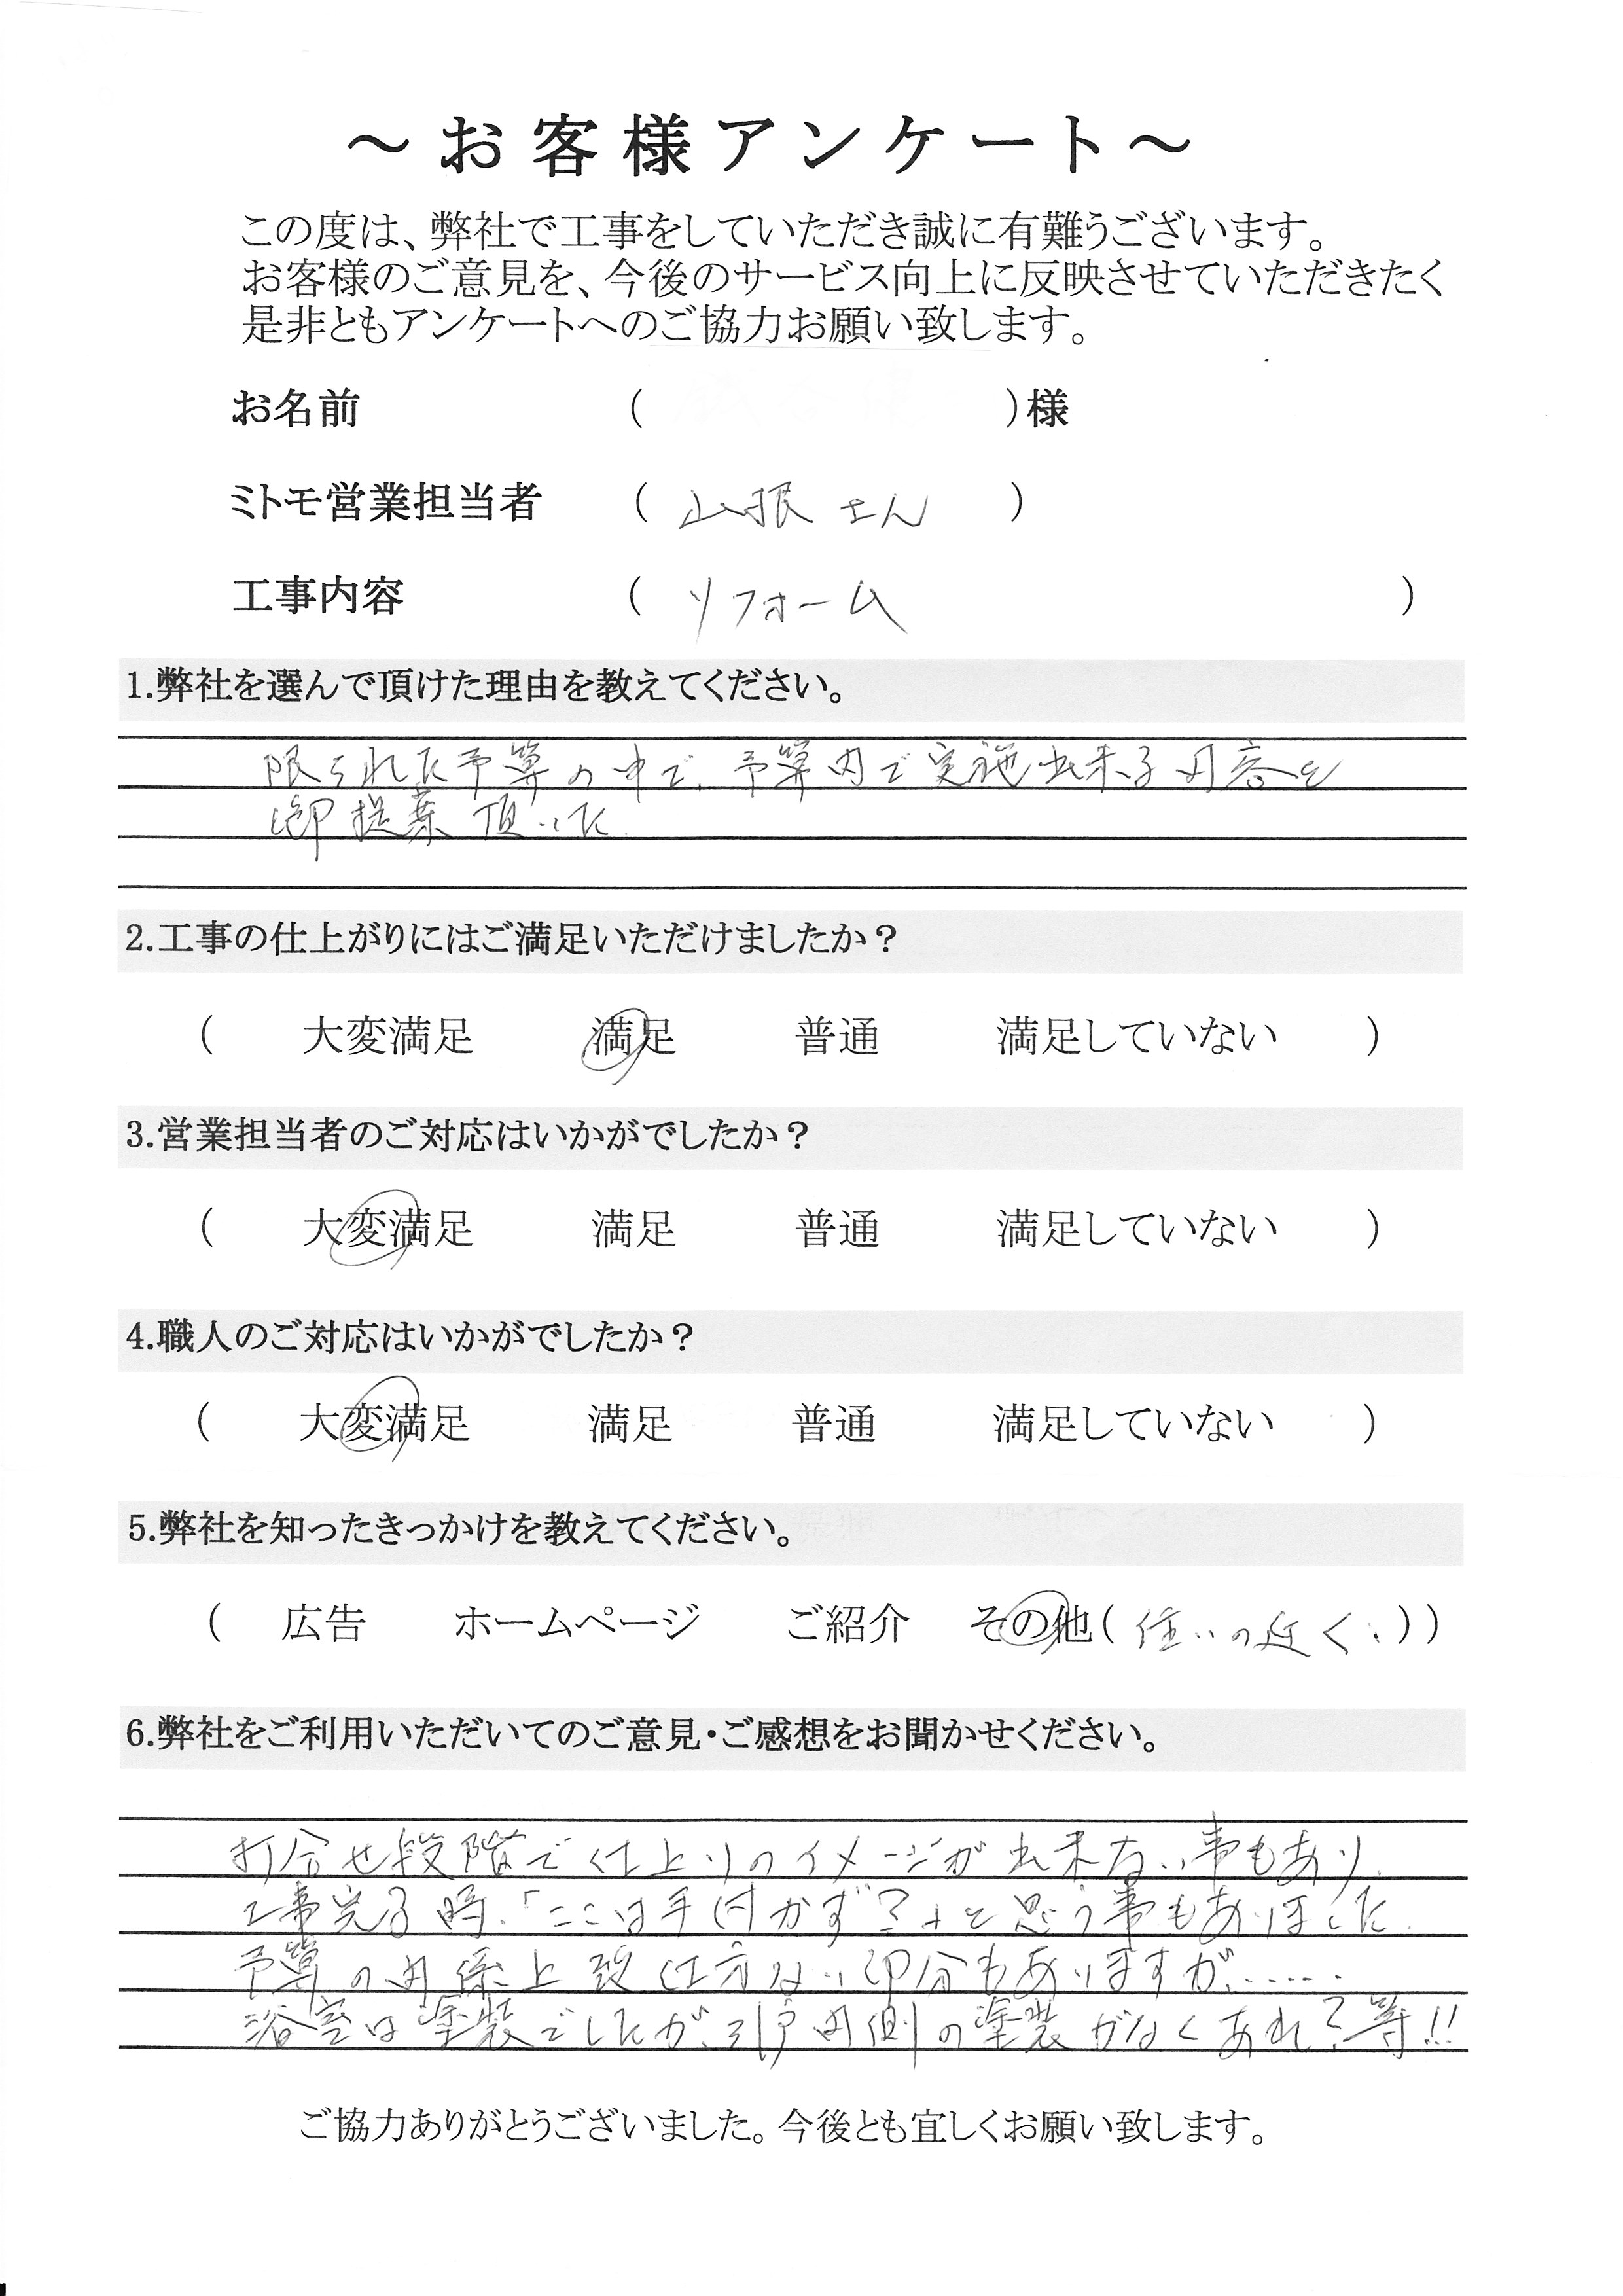 ～お客様アンケート～
この度は、弊社で工事をしていただき誠に有難うございます。
お客様のご意見を、今後のサービス向上に反映させていただきたく
是非ともアンケートへのご協力お願い致します。
お名前 ( )様
ミトモ営業担当者 ( 山根さん )
工事内容 ( リフォーム )
1.弊社を選んで頂けた理由を教えてください。
限られた予算の中で、予算内で実施出来る内容を
御提案頂いた
2.工事の仕上がりにはご満足いただけましたか？
( 大変満足 満足 普通 満足していない )
3.営業担当者のご対応はいかがでしたか？
( 大変満足 満足 普通 満足していない )
4.職人のご対応はいかがでしたか？
( 大変満足 満足 普通 満足していない )
5.弊社を知ったきっかけを教えてください。
( 広告 ホームページ ご紹介 その他( 住いの近く、))
6.弊社をご利用いただいてのご意見・ご感想をお聞かせください。
打合せ段階で仕上りのイメージが出来ない事もあり、
工事完了時、「ここは手付かず？」と思う事もありました。
予算の関係上致仕方ない部分もありますが、……
浴室は塗装でしたが、引戸内側の塗装がなくあれ？等!!
ご協力ありがとうございました。今後とも宜しくお願い致します。